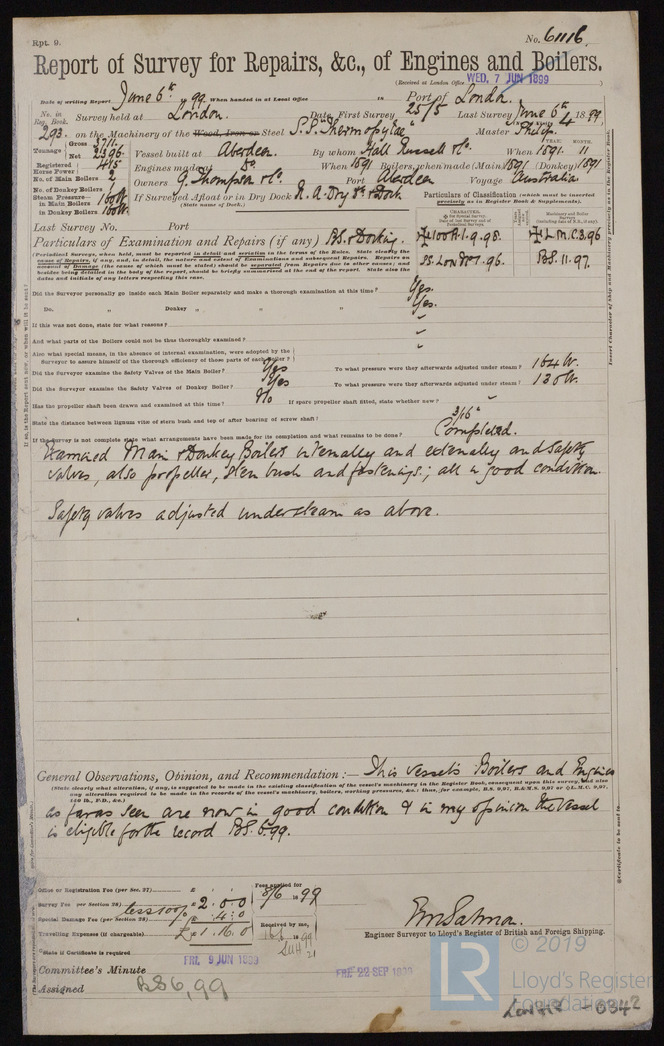 Rpt. 9.
No. 61116.
Report of Survey for Repairs, &c., of Engines and Boilers.
(Received at London Office WED. 7 JUN 1899
Date of writing Report June 6th 99 When handed in at Local Office Port of London.
No. in Reg. Book. Survey held at London. Date, First Survey 25/5 Last Survey June 6th 1899
293. on the Machinery of the Wood, Iron or Steel S.S. Thermopylae Master Philip.
Tonnage Gross 3711. Net 2396.
Vessel built at Aberdeen. By whom Hall Russell & Co. When 1891. 11
YEAR. MONTH.
Registered Horse Power 445
Engines made at Do. When 1891 Boilers, when made (Main) 1891 (Donkey) 1891
No. of Main Boilers 2
Owners G. Thompson & Co. Port Aberdeen Voyage Australia
No. of Donkey Boilers 1
If Surveyed Afloat or in Dry Dock R. A. Dry Dk & Dock
(State name of Dock.)
Steam Pressure—
in Main Boilers 160 lb.
in Donkey Boilers 100 lb.
Particulars of Classification (which must be inserted precisely as in Register Book & Supplements).
Last Survey No. Port
✠100A.1.9.98. ✠L.M.C.3.96
Particulars of Examination and Repairs (if any) B.S. & Docking.
B.S. 11.97.
(Periodical Surveys, when held, must be reported in detail and seriatim in the terms of the Rules. State clearly the
cause of Repairs, if any; and, in detail, the nature and extent of Examinations and subsequent Repairs. Repairs on
account of Damage (the cause of which must be stated) should be separated from Repairs due to other causes; and
besides being detailed in the body of the report, should be briefly summarised at the end of the report. State also the
dates and initials of any letters respecting this case.
Did the Surveyor personally go inside each Main Boiler separately and make a thorough examination at this time? Yes.
Do. „ Donkey „ „ „ Yes.
If this was not done, state for what reasons?
And what parts of the Boilers could not be thus thoroughly examined?
Also what special means, in the absence of internal examination, were adopted by the
Surveyor to assure himself of the thorough efficiency of those parts of each boiler?
Did the Surveyor examine the Safety Valves of the Main Boiler? Yes To what pressure were they afterwards adjusted under steam? 164 lb.
Did the Surveyor examine the Safety Valves of Donkey Boiler? Yes To what pressure were they afterwards adjusted under steam? 130 lb.
Has the propeller shaft been drawn and examined at this time? No If spare propeller shaft fitted, state whether new?
State the distance between lignum vitæ of stern bush and top of after bearing of screw shaft? 3/16"
If the survey is not complete state what arrangements have been made for its completion and what remains to be done? Completed.
Examined Main & Donkey Boilers internally and externally and safety
valves, also propeller, stern bush and fastenings; all in good condition.
Safety valves adjusted under steam as above.
General Observations, Opinion, and Recommendation:— This vessel's Boilers and Engines
(State clearly what alteration, if any, is suggested to be made in the existing classification of the vessel's machinery in the Register Book, consequent upon this survey, and also
any alteration required to be made in the records of the vessel's machinery, boilers, working pressures, &c.: thus, for example, B.S. 9,97, B.&M.S. 9,97 or ✠L.M.C. 9,97,
140 lb., F.D., &c.)
as far as seen are now in good condition & in my opinion the vessel
is eligible for the record B.S. 6.99.
Office or Registration Fee (per Sec. 27) £
Survey Fee per Section 28) £ 2 . 0 . 0
Special Damage Fee (per Section 28) less 10% £ : 4 : 0
Travelling Expenses (if chargeable) £ 1 . 16 . 0
Fees applied for 8/6 1899
Received by me,
*State if Certificate is required
Engineer Surveyor to Lloyd's Register of British and Foreign Shipping.
FRI. 9 JUN 1899
FRI. 22 SEP 1899
Committee's Minute
Assigned BS 6,99
LR
© 2019
Lloyd's Register
Foundation
-0342